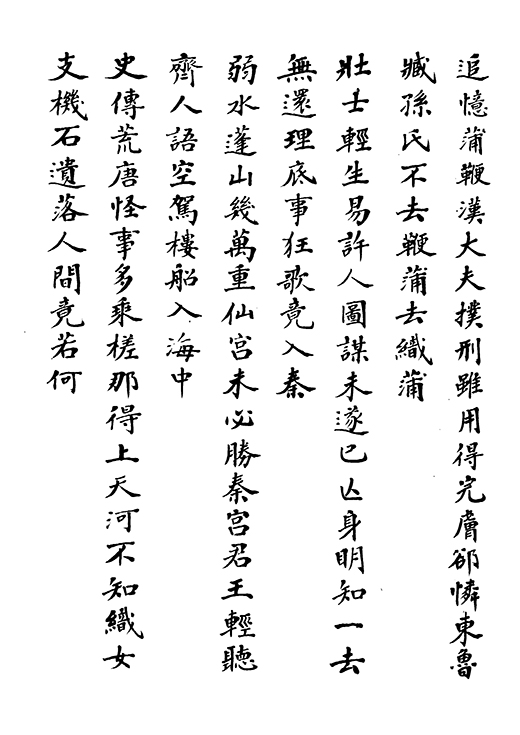 追憶蒲鞭漢大夫撲刑雖用得完膚郤憐東魯
臧孫氏不去鞭蒲去織蒲
壯士輕生易許人圖謀未遂已亡身明知一去
無還理底事狂歌竟入秦
弱水蓬山幾萬重仙宮未必勝秦宮君王輕聽
齊人語空駕樓船入海中
史傳荒唐怪事多乘槎那得上天河不知織女
支機石遺落人間竟若何